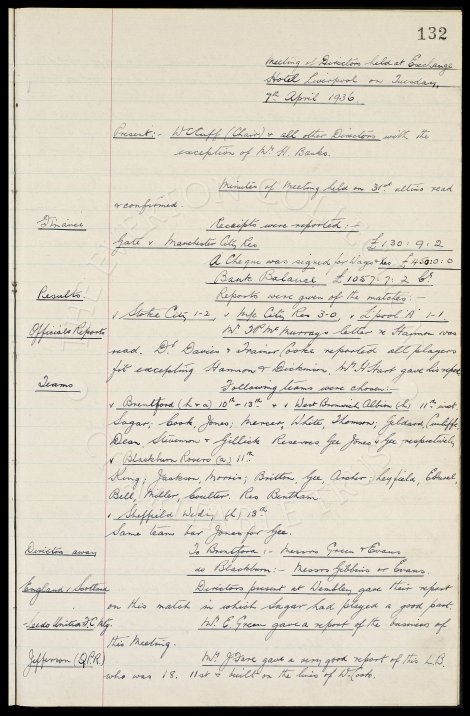 132
Meeting of Directors held at Exchange
Hotel Liverpool on Tuesday,
7th April 1936.
Present:- W Cuff (Chair) & all other Directors with the
exception of Mr H. Banks.
Minutes of Meeting held on 31st ultimo read
& confirmed.
Finance
Receipts were reported:-
Gate v Manchester City Res £130:9:2
A Cheque was signed for Wages &c £450:0:0
Bank Balance £1057:7:2
Results.
Reports were given of the matches:-
v Stoke City 1-2, v M/c City Res 3-0, v L'pool 'A' 1-1.
Officials Reports
Mr McMurray's letter re was
read. Dr Davies & Trainer Cooke reported all players
fit excepting & Dickinson. Mr H Hart gave his report
Teams
Following teams were chosen:-
v Brentford (h & a) 10th - 13th & v West Bromwich Albion (h) 11th inst
Sagar; Cook Jones; Mercer, White, Thomson; Geldard, Cunliffe
Dean Stevenson & Gillick Reserves Gee Jones & Gee respectively
v Blackburn Rovers (a) 11th
King; Jackson, Morris; Britton Gee, Archer; Leyfield,
Bell, Miller, Coulter. Res Bentham.
v Sheffield Wedy (h) 13th
Same team bar Jones for Gee.
Directors away
To Brentford:- Messrs Green & Evans
do Blackburn:- Messrs Gibbins or Evans.
England v Scotland
Directors present at Wembley gave their report
on this match in which Sagar had played a good part.
Leeds United F.C. Mtg
Mr E. Green gave a report of the business of
this Meeting.
Jefferson (Q.P.R)
Mr J Fare gave a very good report of this L.B.
who was 18. 11st & built on the lines of W. Cook.